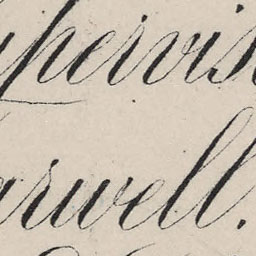 pervis
arwell.